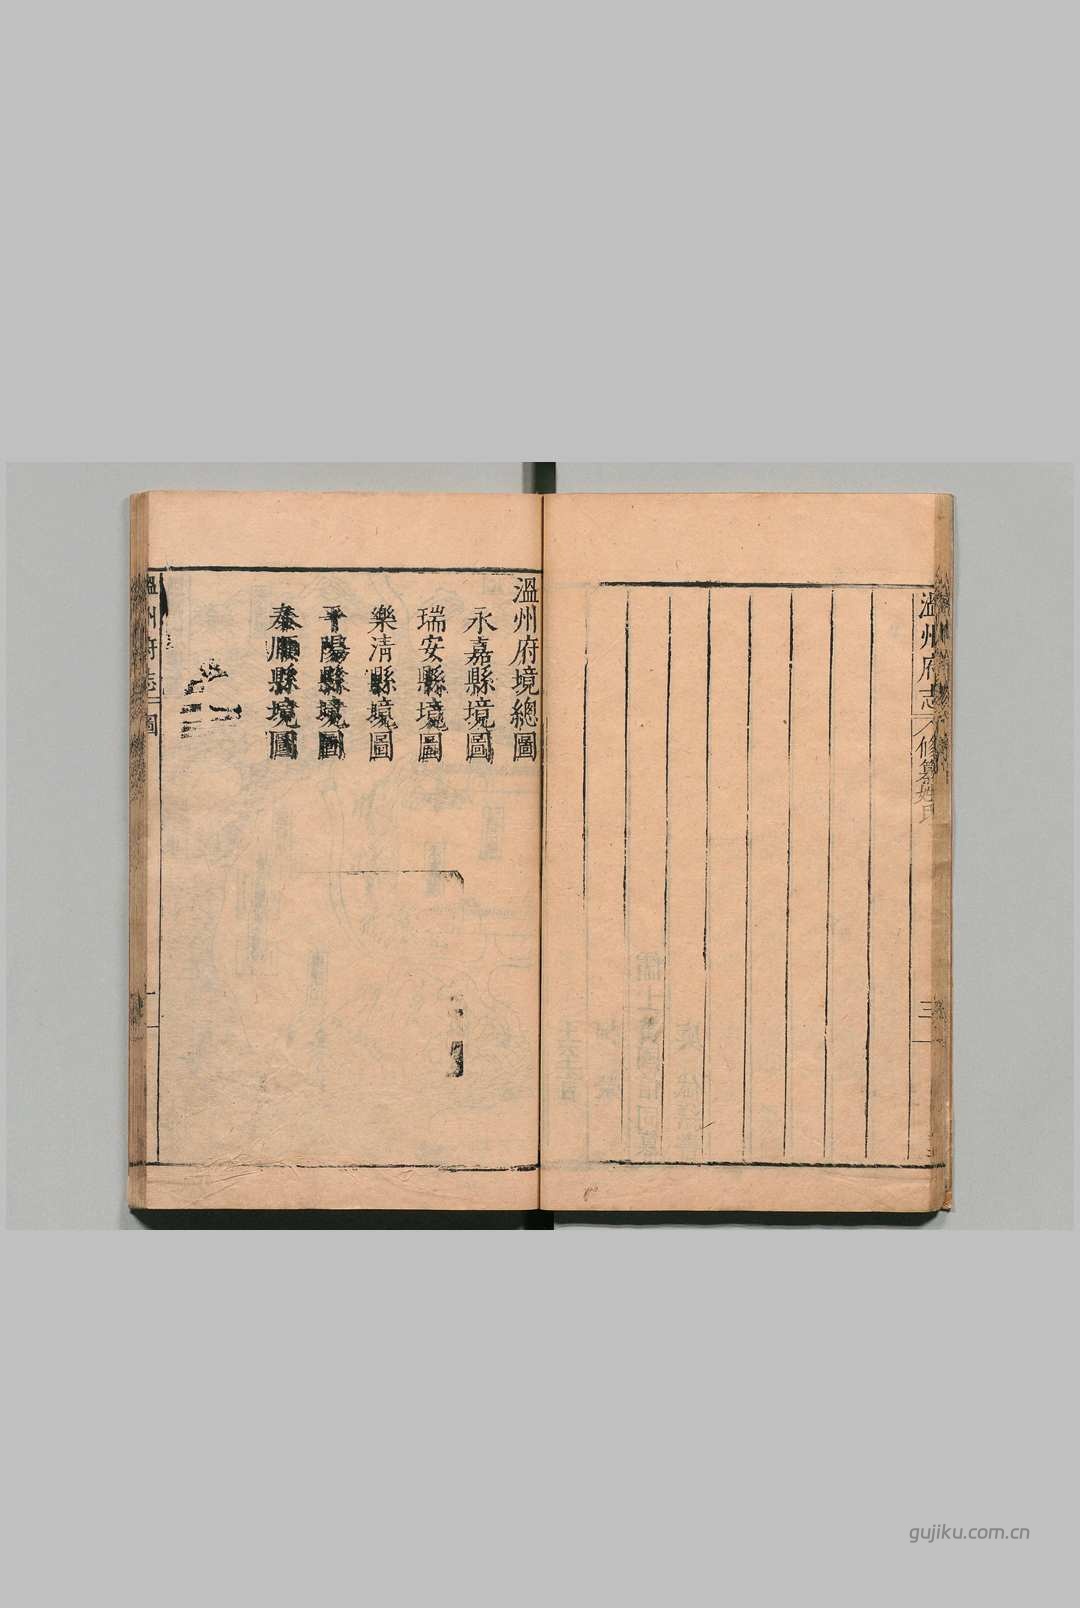 溫州府志
修纂姓氏
三
溫州府境總圖
永嘉縣境圖
瑞安縣境圖
樂清縣境圖
平陽縣境圖
泰順縣境圖
溫州府志
圖
一
gujiku.com.cn